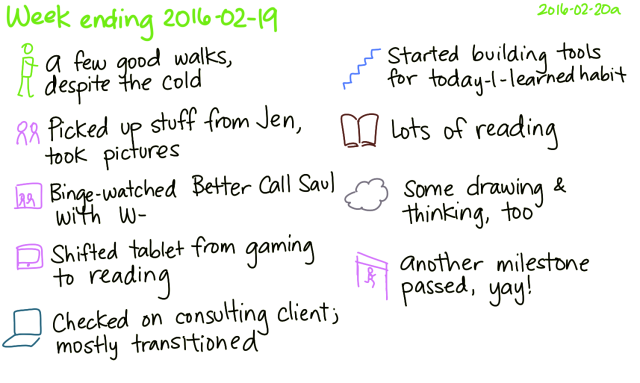 Week ending 2016-02-19
2016-02-20a
a few good walks,
despite the cold
Picked up stuff from Jen,
took pictures
Binge-watched Better Call Saul
with W-
Shifted tablet from gaming
to reading
Checked on consulting client;
mostly transitioned
Started building tools
for today-I-learned habit
Lots of reading
Some drawing &
thinking, too
another milestone
passed, yay!